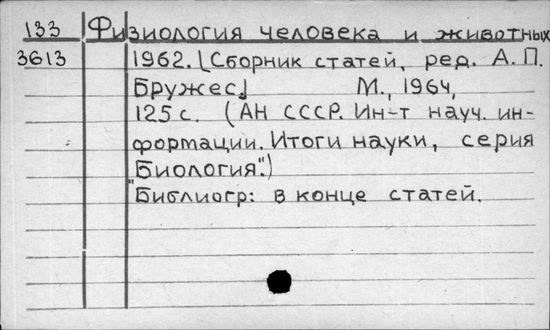 133 Физиология человека и животных
3613 1962. [Сборник статей, ред. А. П.
Бружес] М., 1964,
125 с. (АН СССР. Ин-т науч. ин-
формации. Итоги науки, серия
"Биология".)
Библиогр: в конце статей.